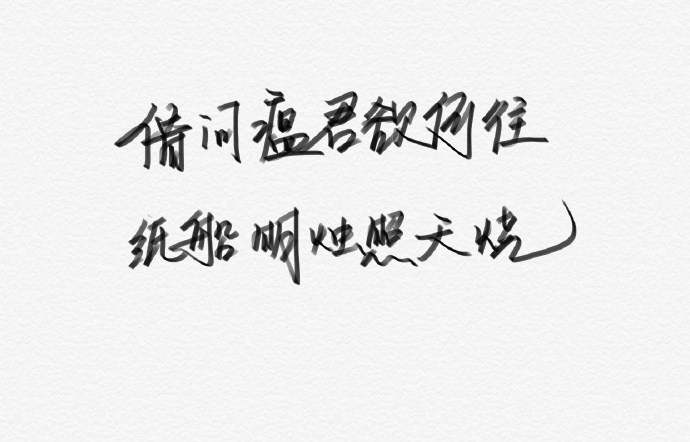 借问瘟君欲何往
纸船明烛照天烧